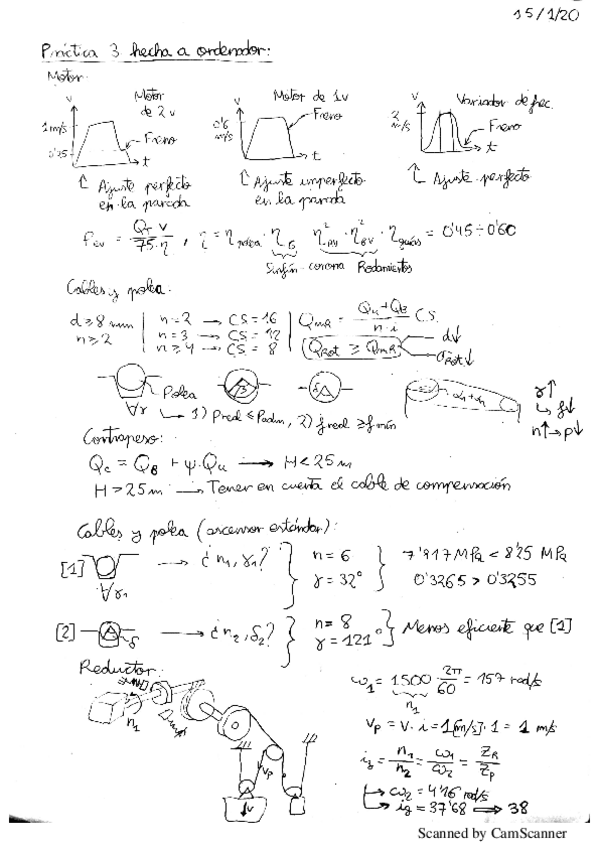 15/1/20
Práctica 3 hecha a ordenador:
Motor:
Motor de 2v
Motor de 1v
Variador de frec.
v
1 m/s
0'25
Freno
t
v
0'6 m/s
Freno
t
v
2 m/s
Freno
t
Ajuste perfecto en la parada
Ajuste imperfecto en la parada
Ajuste perfecto
Pcv = QT v / 75·η , η = ηpolea · ηG · η²RV · η²BV · ηguías = 0'45÷0'60
Sinfín-corona Rodamientos
Cables y polea:
d ≥ 8 mm
n ≥ 2
n = 2 → CS = 16
n = 3 → CS = 12
n ≥ 4 → CS = 8
QmR = Qu + QB / n·i CS.
QRot ≥ QmR
d↓
σRot↓
Polea
∀γ
1) Preal ≤ Padm, 2) freal ≥ fmín
γ↑
f↓
n↑→p↓
Contrapeso:
Qc = QB + ψ·Qu → H < 25 m
H > 25 m → Tener en cuenta el cable de compensación
Cables y polea (ascensor estándar):
[1]
∀γ1
→ ¿n1, γ1?
n = 6
γ = 32°
7'817 MPa < 8'25 MPa
0'3265 > 0'3255
[2]
δ
→ ¿n2, δ2?
n = 8
γ = 121°
Menos eficiente que [1]
Reductor:
n1
vp
v
ω1 = 1500 · 2π/60 = 157 rad/s
n1
vp = v · i = 1[m/s]·1 = 1 m/s
iz = n1/n2 = ω1/ω2 = ZR/ZP
ω2 = 4'16 rad/s
iz = 37'68 ⟹ 38
Scanned by CamScanner